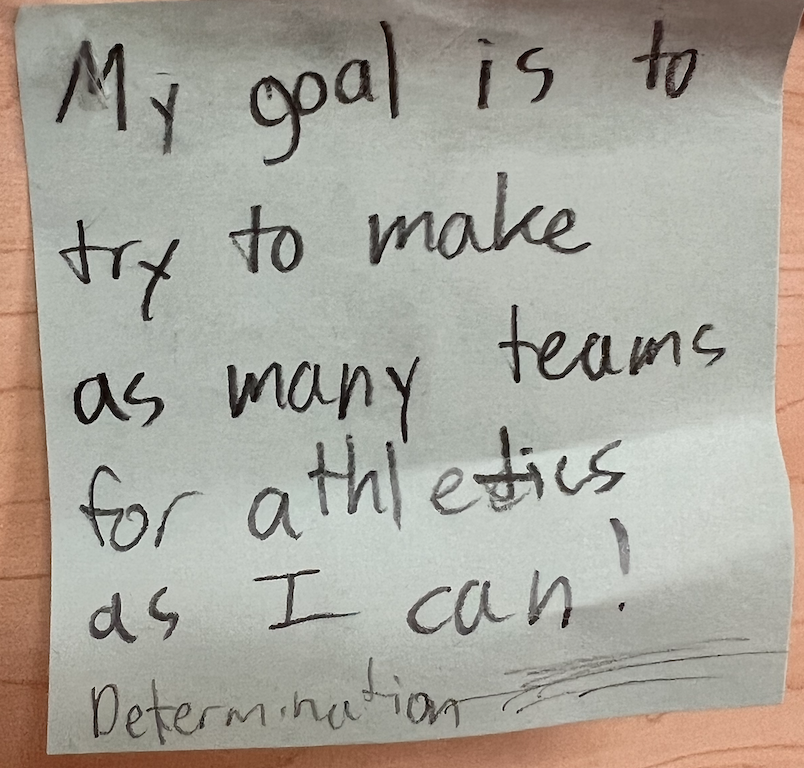 My goal is to
try to make
as many teams
for athletics
as I can!
Determination